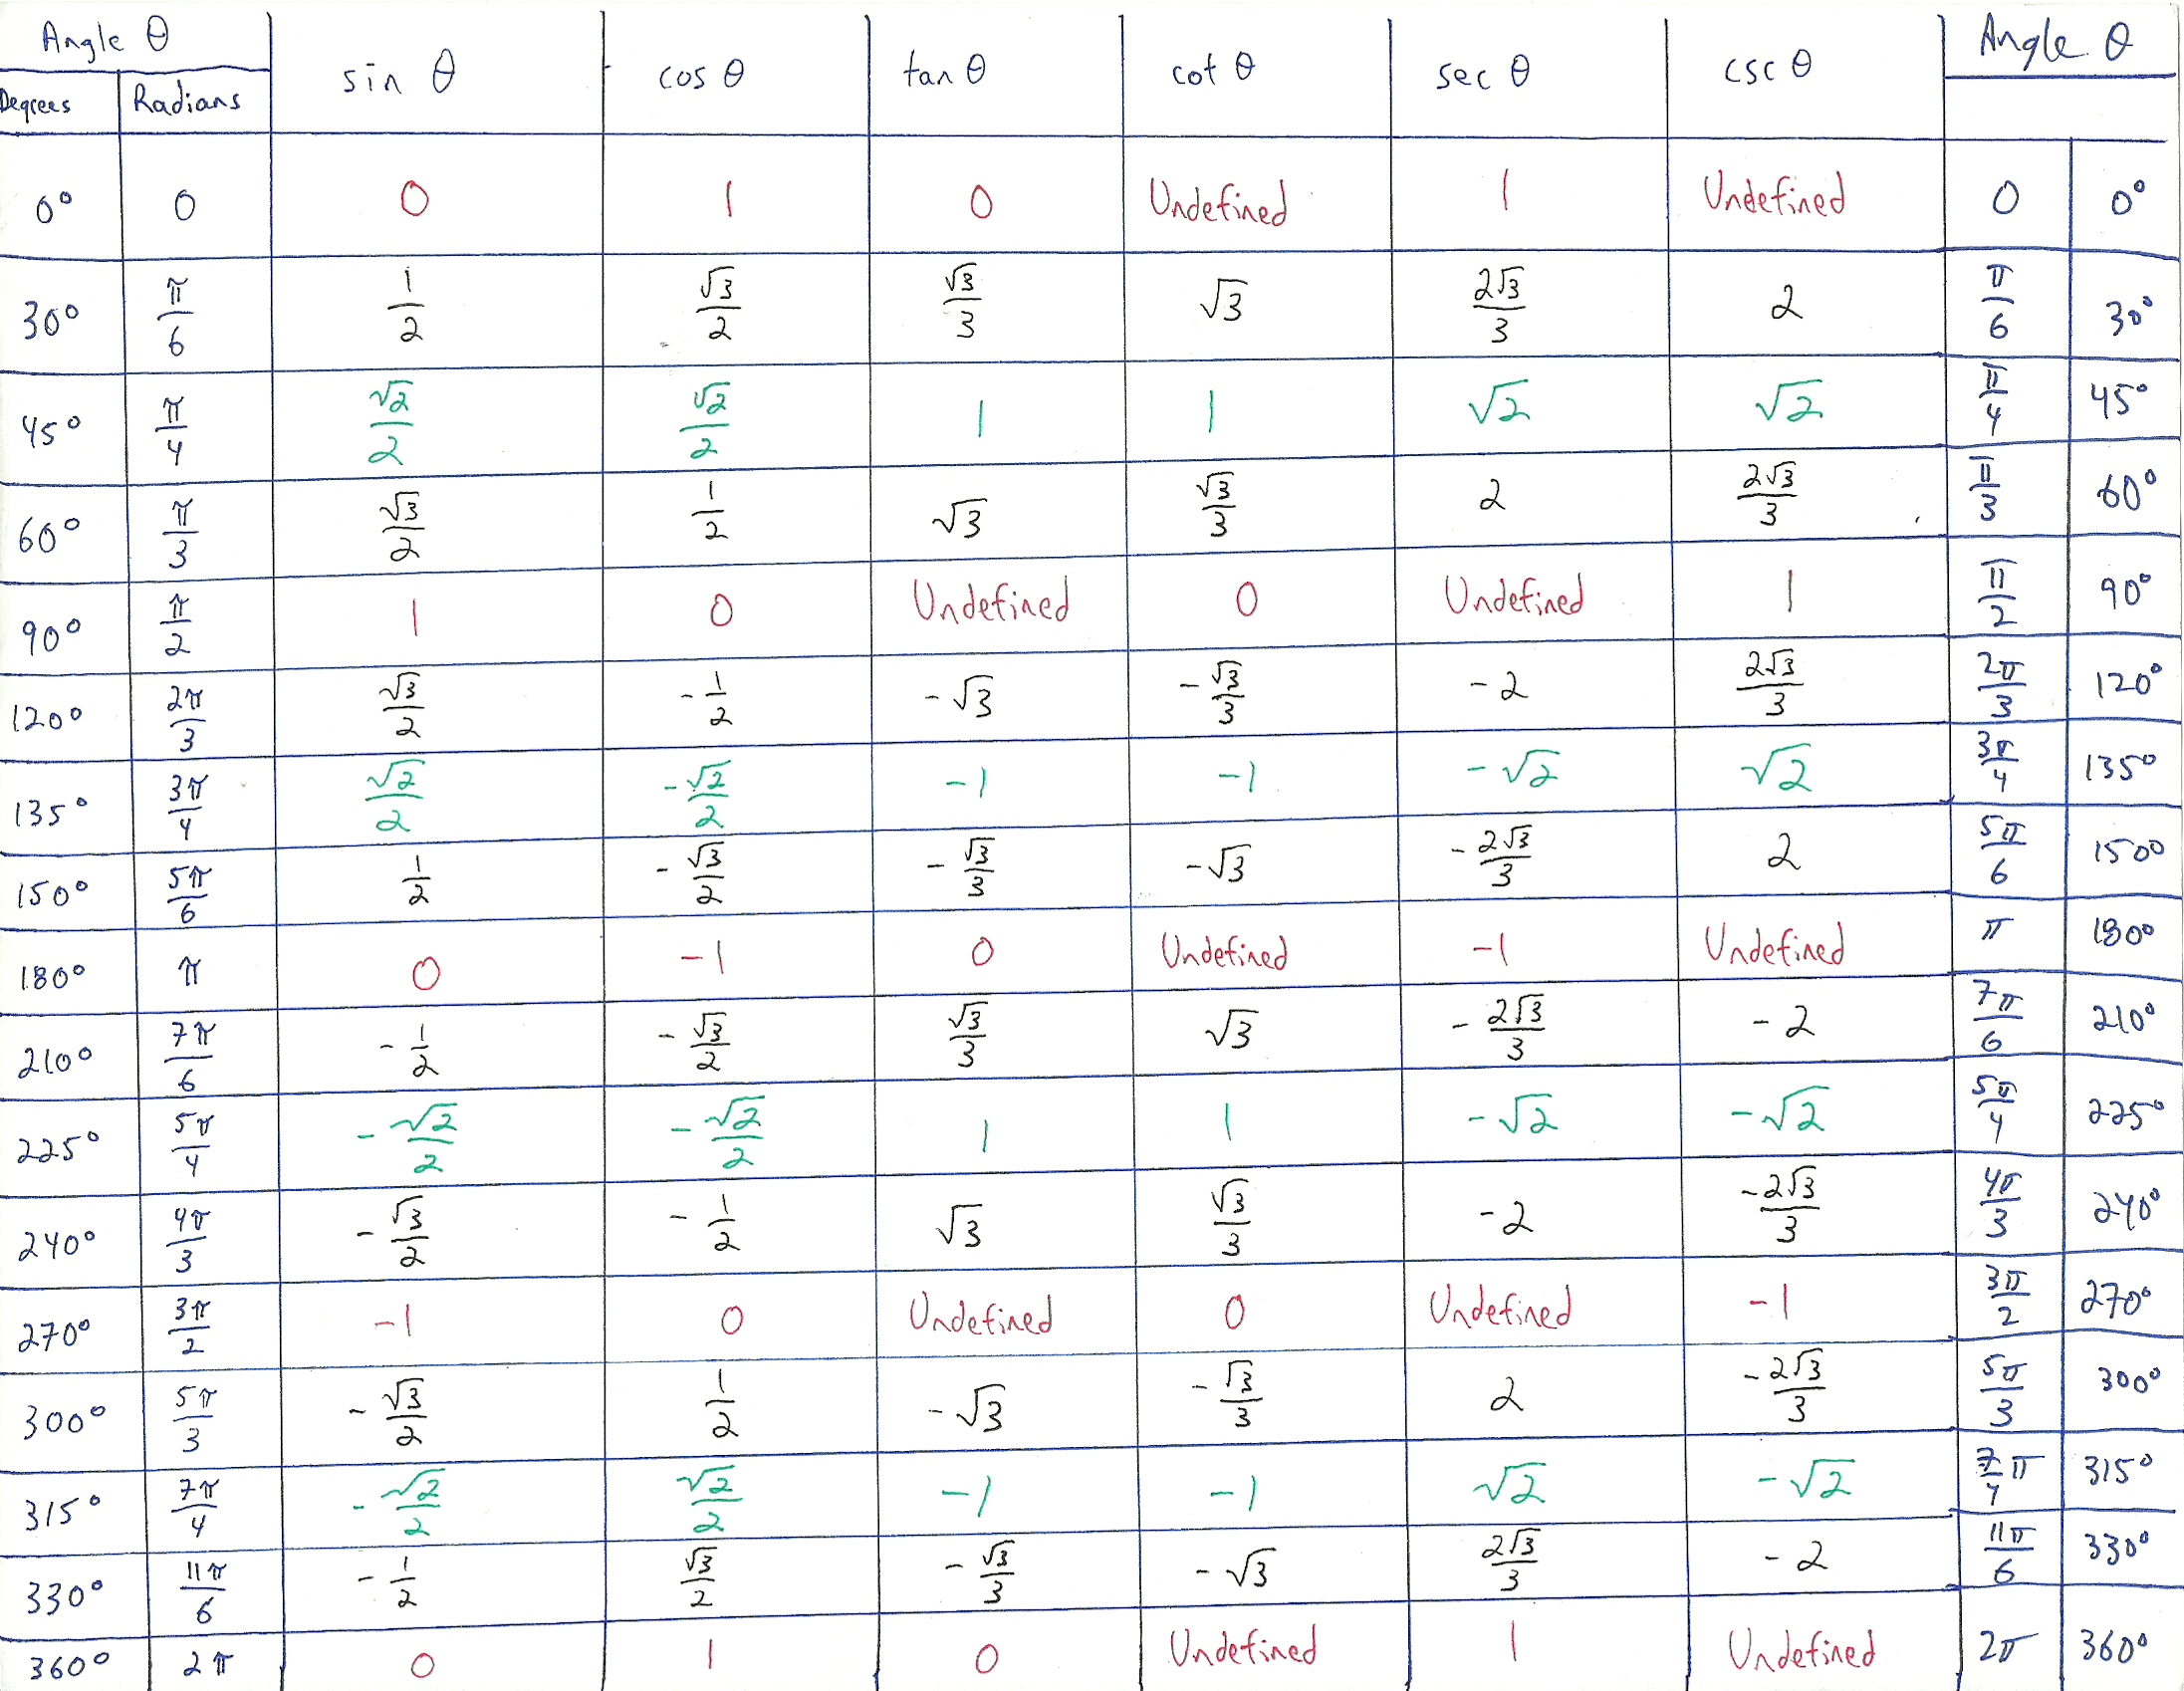 Angle θ sin θ cos θ tan θ cot θ sec θ csc θ Angle θ
Degrees Radians
0° 0 0 1 0 Undefined 1 Undefined 0 0°
30° π/6 1/2 √3/2 √3/3 √3 2√3/3 2 π/6 30°
45° π/4 √2/2 √2/2 1 1 √2 √2 π/4 45°
60° π/3 √3/2 1/2 √3 √3/3 2 2√3/3 π/3 60°
90° π/2 1 0 Undefined 0 Undefined 1 π/2 90°
120° 2π/3 √3/2 -1/2 -√3 -√3/3 -2 2√3/3 2π/3 120°
135° 3π/4 √2/2 -√2/2 -1 -1 -√2 √2 3π/4 135°
150° 5π/6 1/2 -√3/2 -√3/3 -√3 -2√3/3 2 5π/6 150°
180° π 0 -1 0 Undefined -1 Undefined π 180°
210° 7π/6 -1/2 -√3/2 √3/3 √3 -2√3/3 -2 7π/6 210°
225° 5π/4 -√2/2 -√2/2 1 1 -√2 -√2 5π/4 225°
240° 4π/3 -√3/2 -1/2 √3 √3/3 -2 -2√3/3 4π/3 240°
270° 3π/2 -1 0 Undefined 0 Undefined -1 3π/2 270°
300° 5π/3 -√3/2 1/2 -√3 -√3/3 2 -2√3/3 5π/3 300°
315° 7π/4 -√2/2 √2/2 -1 -1 √2 -√2 7/4 π 315°
330° 11π/6 -1/2 √3/2 -√3/3 -√3 2√3/3 -2 11π/6 330°
360° 2π 0 1 0 Undefined 1 Undefined 2π 360°